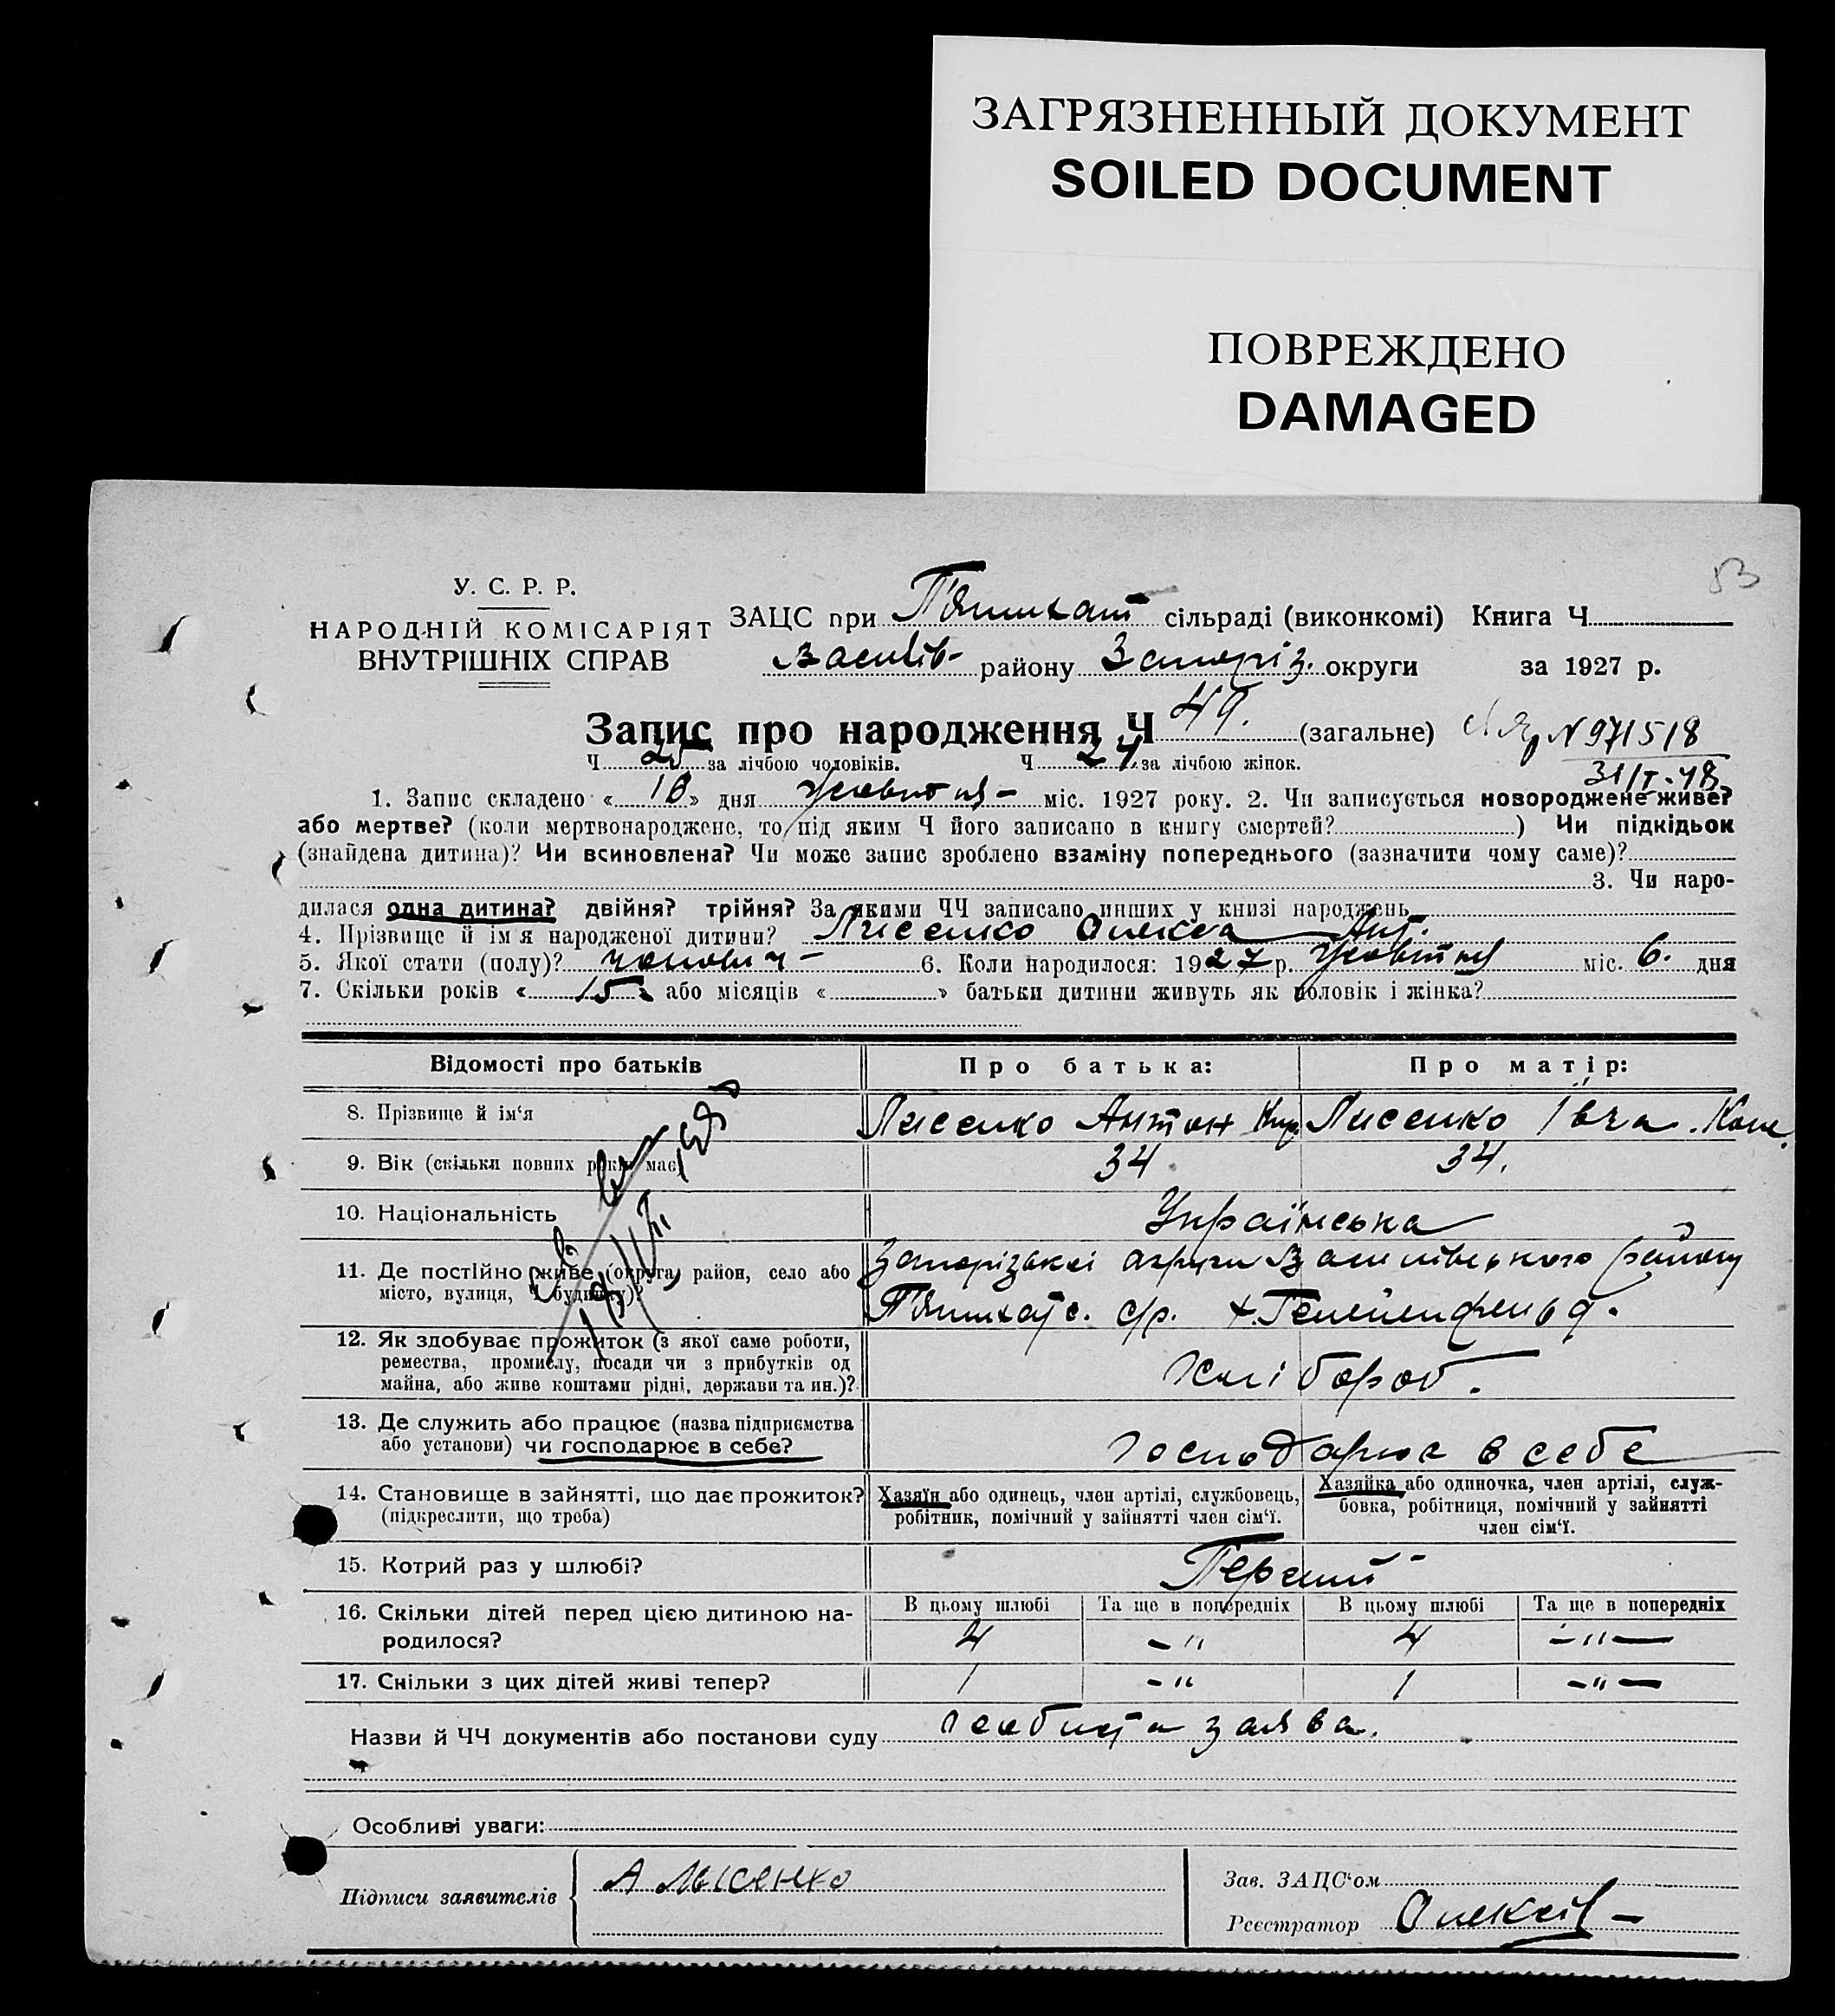 ЗАГРЯЗНЕННЫЙ ДОКУМЕНТ
SOILED DOCUMENT
ПОВРЕЖДЕНО
DAMAGED
53
У. С. Р. Р.
НАРОДНІЙ КОМІСАРІЯТ
ВНУТРІШНІХ СПРАВ
ЗАЦС при П'ятихат сільраді (виконкомі) Книга Ч
Василів- району Запоріз. округи за 1927 р.
Запис про народження Ч 49. (загальне)
N 971518
Ч 25 за лічбою чоловіків. Ч 24 за лічбою жінок.
31/I-48
1. Запис складено « 18 » дня Жовтня - міс. 1927 року. 2. Чи записується новороджене живе?
або мертве? (коли мертвонароджене, то під яким Ч його записано в книгу смертей? ) Чи підкідьок
(знайдена дитина)? Чи всиновлена? Чи може запис зроблено взаміну попереднього (зазначити чому саме)?
3. Чи наро-
дилася одна дитина? двійня? трійня? За якими ЧЧ записано инших у книзі народжень
4. Прізвище й ім'я народженої дитини? Лисенко Олекса Ант.
5. Якої стати (полу)? чоловіч - 6. Коли народилося: 1927 р. Жовтня міс. 6. дня
7. Скільки років « 15 » або місяців « » батьки дитини живуть як чоловік і жінка?
Відомості про батьків Про батька: Про матір:
8. Прізвище й ім'я Лисенко Антон Кир. Лисенко Івга
9. Вік (скільки повних років має) 34 34.
10. Національність Українська
11. Де постійно живе (округа, район, село або Запорізької округи Василівського району
місто, вулиця, Ч будинку)? П'ятихатс. с/р. х.
12. Як здобуває прожиток (з якої саме роботи,
ремества, промислу, посади чи з прибутків од
майна, або живе коштами рідні, держави та ин.)? Хлібороб.
13. Де служить або працює (назва підприємства
або установи) чи господарює в себе? господарює в себе
14. Становище в зайнятті, що дає прожиток? Хазяїн або одинець, член артілі, службовець, Хазяйка або одиночка, член артілі, служ-
(підкреслити, що треба) робітник, помічний у зайнятті член сім'ї. бовка, робітниця, помічний у зайнятті
член сім'ї.
15. Котрий раз у шлюбі? Перший -
16. Скільки дітей перед цією дитиною на- В цьому шлюбі Та ще в попередніх В цьому шлюбі Та ще в попередніх
родилося? 4 - " 4 - " -
17. Скільки з цих дітей живі тепер? 1 - " 1 - " -
Назви й ЧЧ документів або постанови суду особиста заява.
Особливі уваги:
Підписи заявителів А Лысенко
Зав. ЗАЦС'ом
Реєстратор Олексій